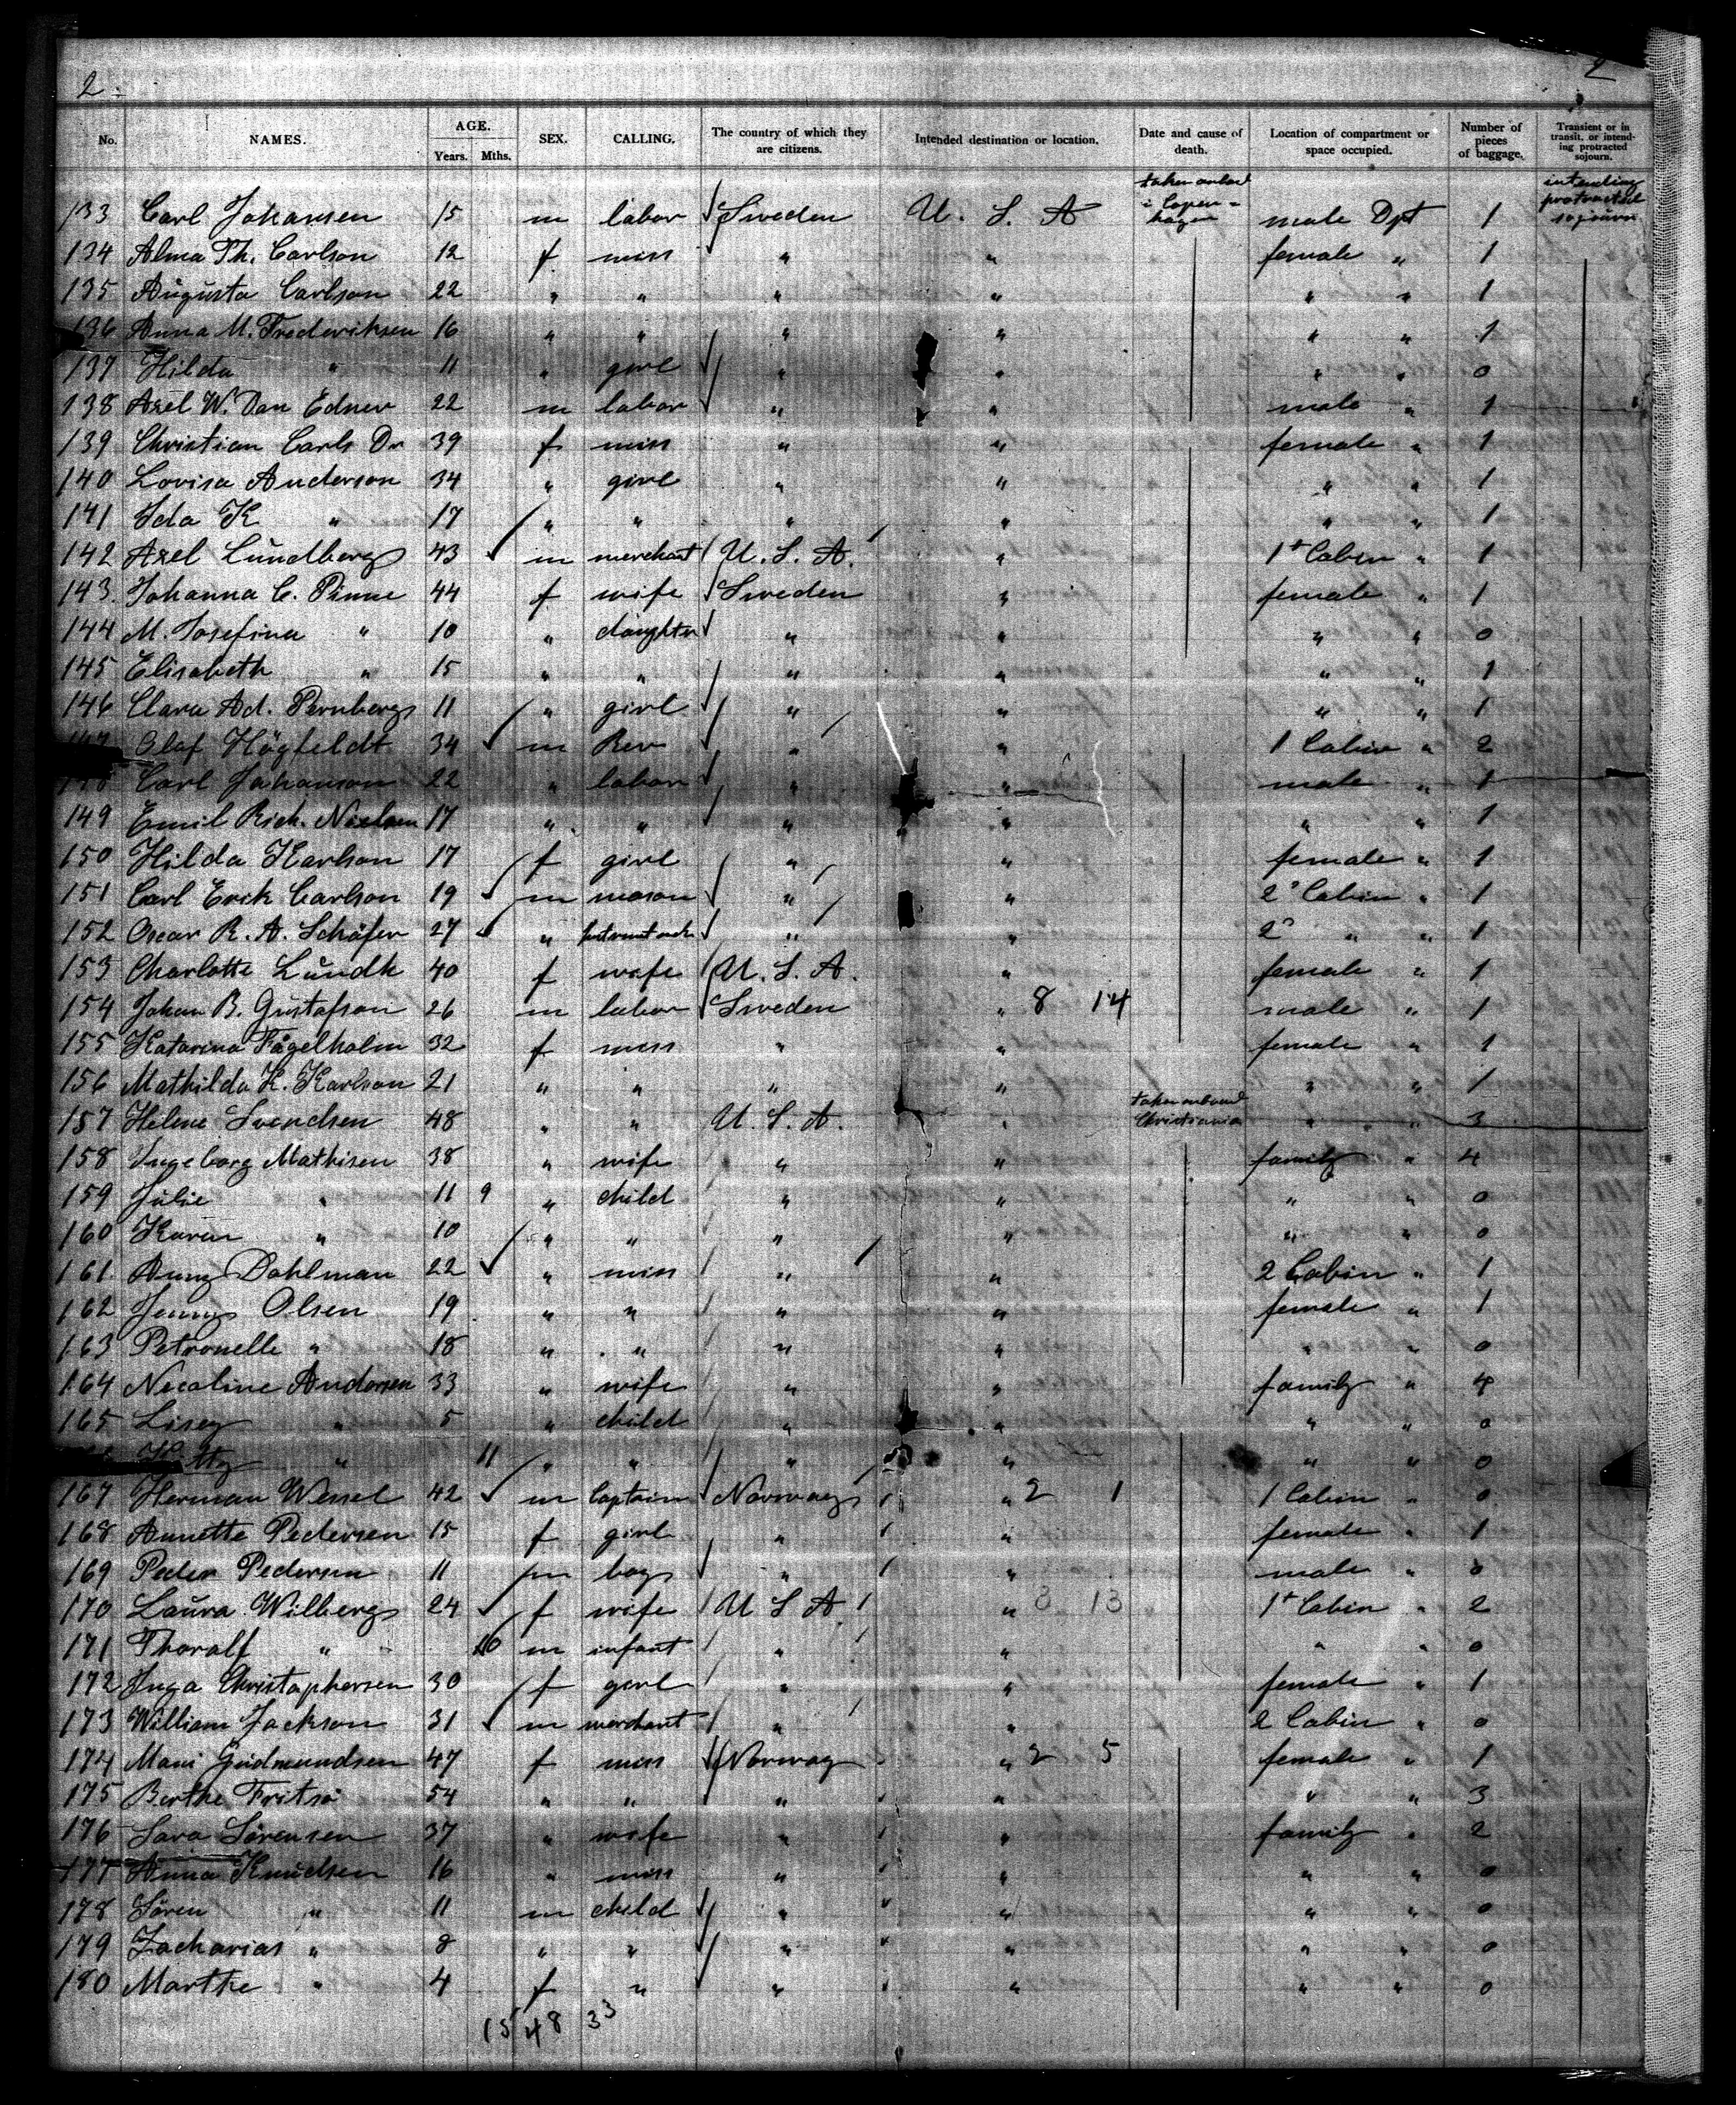 2. 2
No. NAMES. AGE. Years. Mths. SEX. CALLING. The country of which they are citizens. Intended destination or location. Date and cause of death. Location of compartment or space occupied. Number of pieces of baggage. Transient or in transit, or intending protracted sojourn.
133 Carl Johansen 15 m labor Sweden U. S. A taken onboard i Copenhagen male Dpt 1 intending protracted sojourn
134 Alma Th. Carlson 12 f miss " " female " 1
135 Augusta Carlson 22 " " " " " " 1
136 Anna M. Frederiksen 16 " " " " " " 1
137 Hilda " 11 " girl " " " " 0
138 Axel W. Dan Edner 22 m labor " " male " 1
139 Christian Carls Dr 39 f miss " " female " 1
140 Lovisa Anderson 34 " girl " " " " 1
141 Ida K " 17 " " " " " " 1
142 Axel Lundberg 43 m merchant U. S. A. " 1st Cabin " 1
143. Johanna C. Pinne 44 f wife Sweden " female " 1
144 M. Josefina " 10 " daughter " " " " 0
145 Elisabeth " 15 " " " " " " 1
146 Clara Ad. Pernberg 11 " girl " " " " 1
147 Olaf Högfeldt 34 m Rev " " 1 Cabin " 2
148 Carl Johanson 22 " labor " " male " 1
149 Emil Rich. Nielsen 17 " " " " " " 1
150 Hilda Karlson 17 f girl " " female " 1
151 Carl Erik Carlson 19 m mason " " 2 Cabin " 1
152 Oscar R. A. Schäfer 27 " " " 2 " " 1
153 Charlotte Lundh 40 f wife U. S. A. " female " 1
154 Johan B. Gustafson 26 m labor Sweden " 8 14 male " 1
155 Katarina Fågelholm 32 f miss " " female " 1
156 Mathilda K. Karlson 21 " " " " " " 1
157 Helene Svendsen 48 " " U. S. A. " taken onboard Christiania " " 3
158 Ingeborg Mathisen 38 " wife " " family " 4
159 Julie " 11 9 " child " " " " 0
160 Karen " 10 " " " " " " 0
161 Anny Dahlman 22 " miss " " 2 Cabin " 1
162 Jenny Olsen 19 " " " " female " 1
163 Petronelle " 18 " " " " " " 0
164 Nicoline Andersen 33 " wife " " family " 4
165 Lisey " 5 " child " " " " 0
" 11 " " " " " " 0
167 Herman Wessel 42 m Captain Norway " 2 1 1 Cabin " 0
168 Annette Pedersen 15 f girl " " female " 1
169 Peder Pedersen 11 m boy " " male " 0
170 Laura Wilberg 24 f wife U S A " 8 13 1st Cabin " 2
171 Thoralf " 10 m infant " " " " 0
172 Inga Christophersen 30 f girl " " female " 1
173 William Jackson 31 m merchant " " 2 Cabin " 0
174 Mari Gudmundsen 47 f miss Norway " 2 5 female " 1
175 Berthe Fritsö 54 " " " " " " 3
176 Sara Sörensen 37 " wife " " family " 2
177 Anna Knudsen 16 " miss " " " " 0
178 Sören " 11 m child " " " " 0
179 Zacharias " 8 " " " " " " 0
180 Marthe " 4 f " " " " " 0
15 48 33